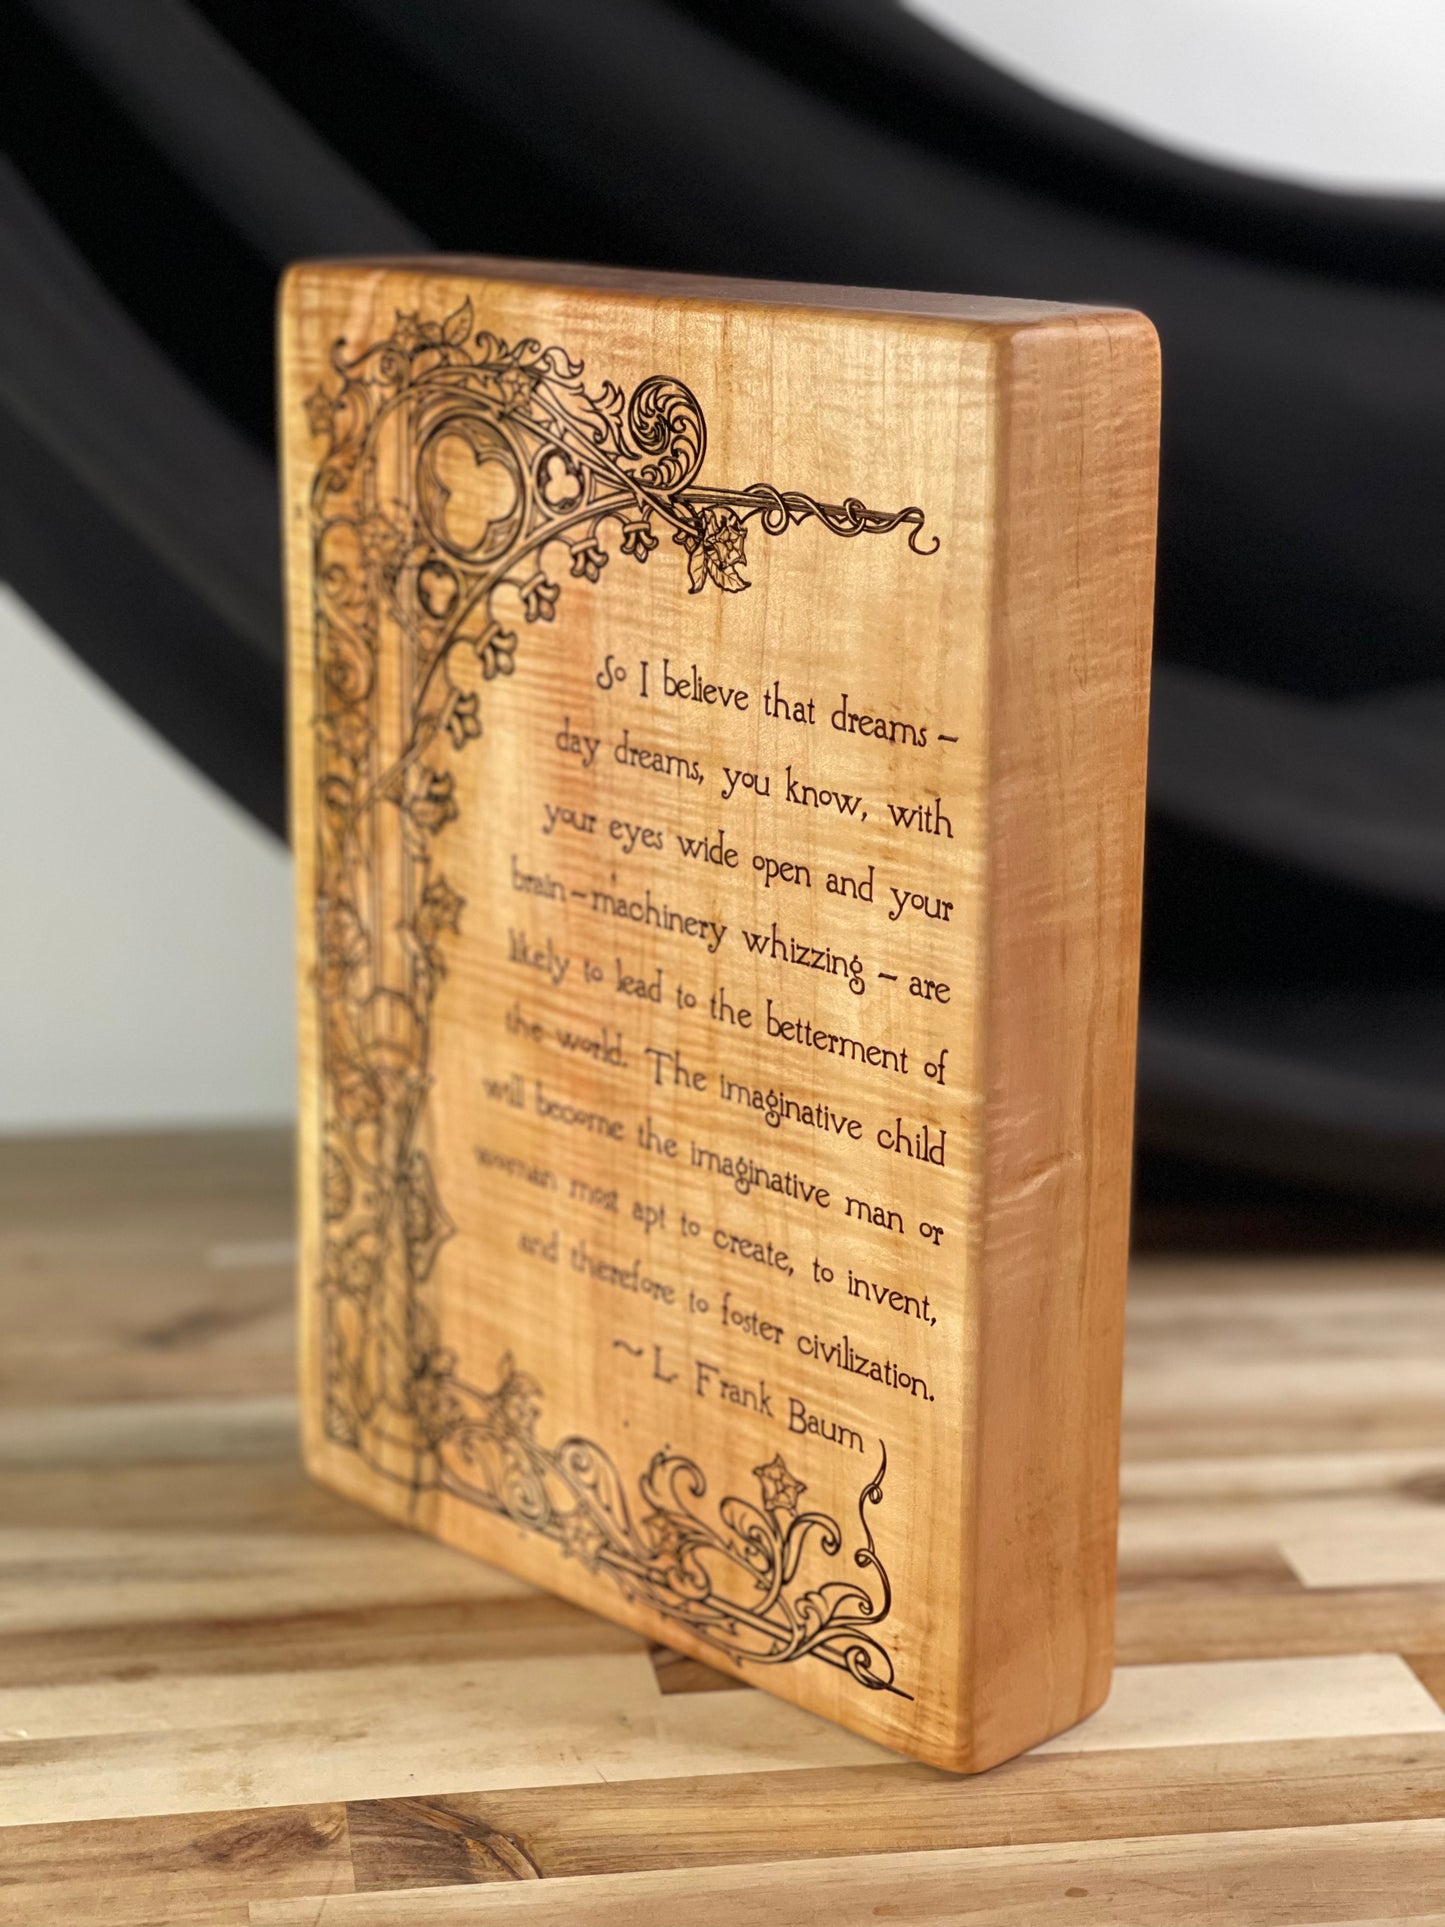 So I believe that dreams –
day dreams, you know, with
your eyes wide open and your
brain-machinery whizzing – are
likely to lead to the betterment of
the world. The imaginative child
will become the imaginative man or
woman most apt to create, to invent,
and therefore to foster civilization.
~ L. Frank Baum